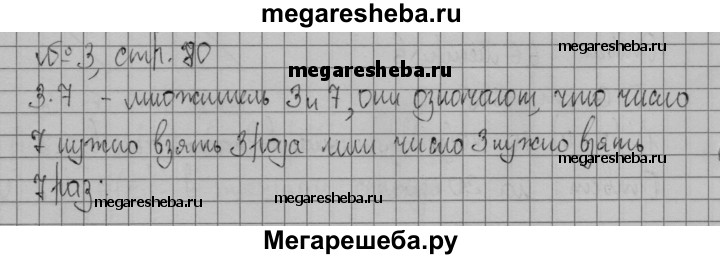 megaresheba.ru
№ 3, стр. 90
megaresheba.ru
megaresheba.ru
3·7 - множитель 3 и 7, они означают, что число
7 нужно взять 3 раза или число 3 нужно взять
megaresheba.ru
7 раз.
megaresheba.ru
megaresheba.ru
megaresheba.ru
Мегарешеба.ру